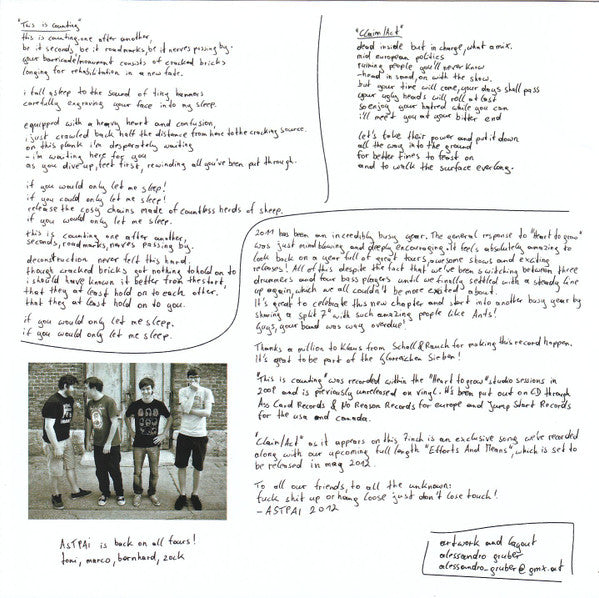 "This is counting"
this is counting, one after another,
be it seconds, be it roadmarks, be it nerves passing by.
your barricade/monument consists of cracked bricks
longing for rehabilitation in a new fate.
i fall asleep to the sound of tiny hammers
carefully engraving your face into my sleep.
equipped with a heavy heart and confusion,
i just crawled back half the distance from home to the cracking source.
on this plank i'm desperately waiting
- i'm waiting here for you
as you dive up, feet first, rewinding all you've been put through.
if you would only let me sleep!
if you could only let me sleep!
release the cosy chains made of countless herds of sheep.
if you would only let me sleep.
this is counting one after another,
seconds, roadmarks, nerves passing by.
deconstruction never felt this hard.
though cracked bricks got nothing to hold on to
i should have known it better from the start
that they at least hold on to each other.
that they at least hold on to you.
if you would only let me sleep.
if you would only let me sleep.
"Claim/Act"
dead inside but in charge, what a mix.
mid european politics
ruining people you'll never know
- head in sand, on with the show.
but your time will come, your days shall pass
your ugly heads will roll at last
so enjoy your hatred while you can
i'll meet you at your bitter end
let's take their power and put it down
all the way into the ground
for better times to feast on
and to walk the surface everlong.
2011 has been an incredibly busy year. The general response to "Heart to grow"
was just mindblowing and deeply encouraging. It feels absolutely amazing to
look back on a year full of great tours, awesome shows and exciting
releases! All of this despite the fact that we've been switching between three
drummers and four bass players until we finally settled with a steady line
up again, which we all couldn't be more excited about.
It's great to celebrate this new chapter and start into another busy year by
sharing a split 7" with such amazing people like Ants!
Guys, your band was way overdue!
Thanks a million to Klaus from Schall & Rauch for making this record happen.
It's great to be part of the Glorreichen Sieben!
"This is counting" was recorded within the "Heart to grow" studio sessions in
2009 and is previously unreleased on vinyl. It's been put out on CD through
Ass Card Records & No Reason Records for europe and Jump Start Records
for the usa and canada.
"Claim/Act" as it appears on this 7inch is an exclusive song we've recorded
along with our upcoming full length "Efforts And Means", which is set to
be released in may 2012.
To all our friends, to all the unknown:
fuck shit up or hang loose just don't lose touch!
- ASTPAI 2012
ASTPAI is back on all fours!
toni, marco, bernhard, zock
artwork and layout
alessandro gruber
alessandro_gruber@gmx.at